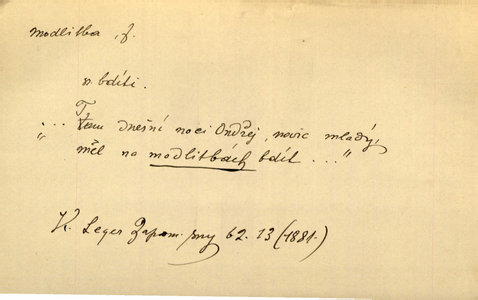 modlitba, f.
v. bdíti.
„... Tam dnešní noci Ondřej, novic mladý,
měl na modlitbách bdít ..."
K. Leger Zapom. sny 62. 13 (1881.)